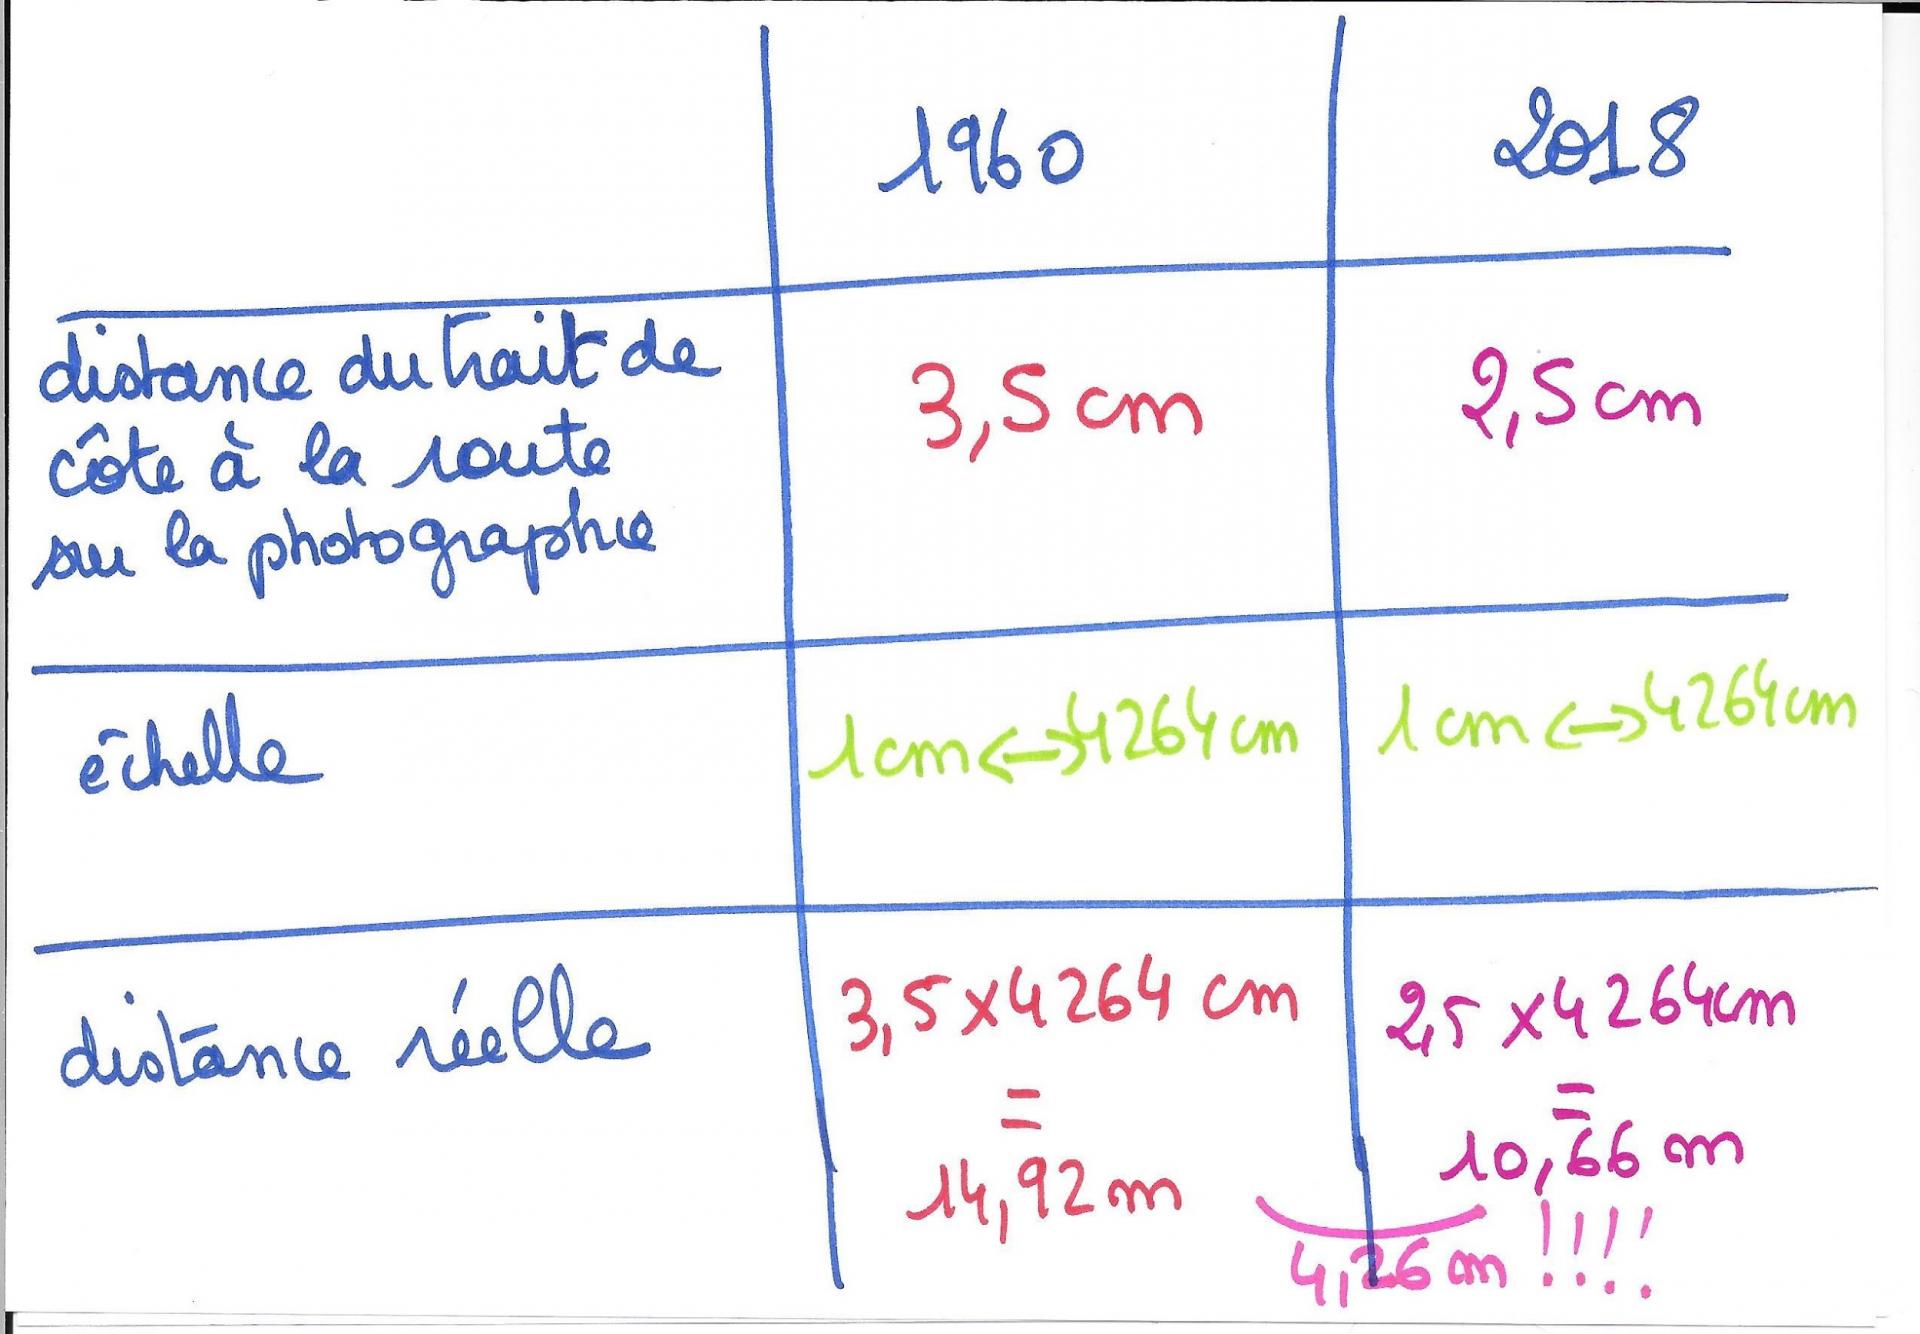 1960
2018
distance du trait de
côte à la route
sur la photographie
3,5 cm
2,5 cm
échelle
1 cm <-> 4264 cm
1 cm <-> 4264 cm
distance réelle
3,5 x 4264 cm
=
14,92 m
2,5 x 4264 cm
=
10,66 m
4,26 m !!!!